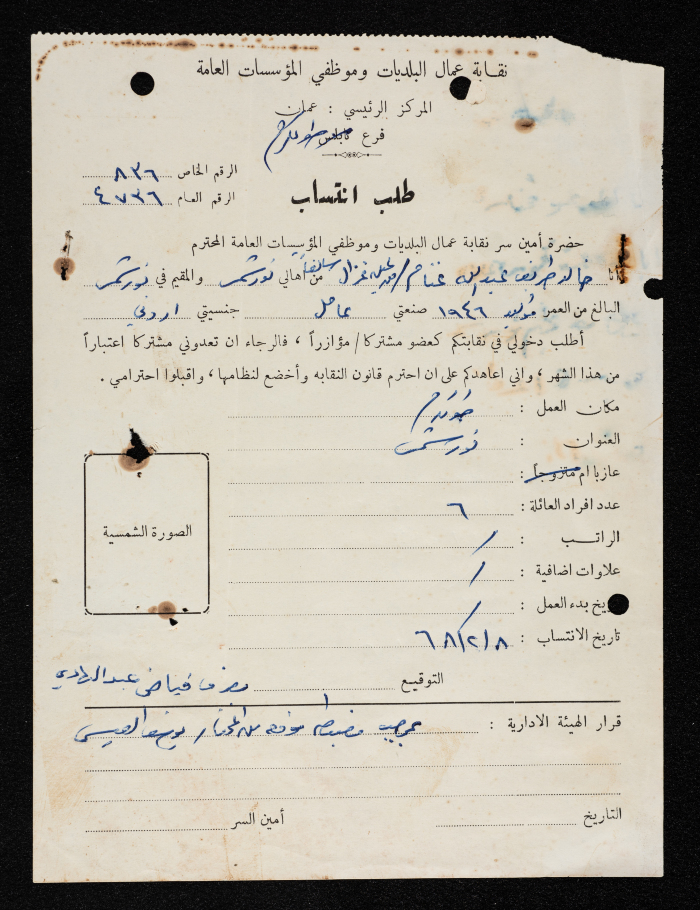 نقابة عمال البلديات وموظفي المؤسسات العامة
المركز الرئيسي : عمان
فرع نابلس طولكرم
الرقم الخاص ٨٣٦
الرقم العام ٤٧٣٦
طلب انتساب
حضرة أمين سر نقابة عمال البلديات وموظفي المؤسسات العامة المحترم
أنا خالد طريف عبدالله غنام / من اهالي نورشمس والمقيم في نورشمس
البالغ من العمر ١٩٤٦ صنعتي عامل جنسيتي اردني
أطلب دخولي في نقابتكم كعضو مشتركا / مؤازراً ، فالرجاء ان تعدوني مشتركا اعتباراً
من هذا الشهر ، واني اعاهدكم على ان احترم قانون النقابه وأخضع لنظامها ، واقبلوا احترامي .
مكان العمل : طولكرم
العنوان : نورشمس
عازبا ام متزوجاً :
عدد افراد العائلة : ٦
الراتب : /
علاوات اضافية : /
تاريخ بدء العمل : /
تاريخ الانتساب : ٦٨/٢/٨
الصورة الشمسية
التوقيع فياض عبدالهادي
قرار الهيئة الادارية : بموجب مضبطة موقعة من المختار
التاريخ
أمين السر